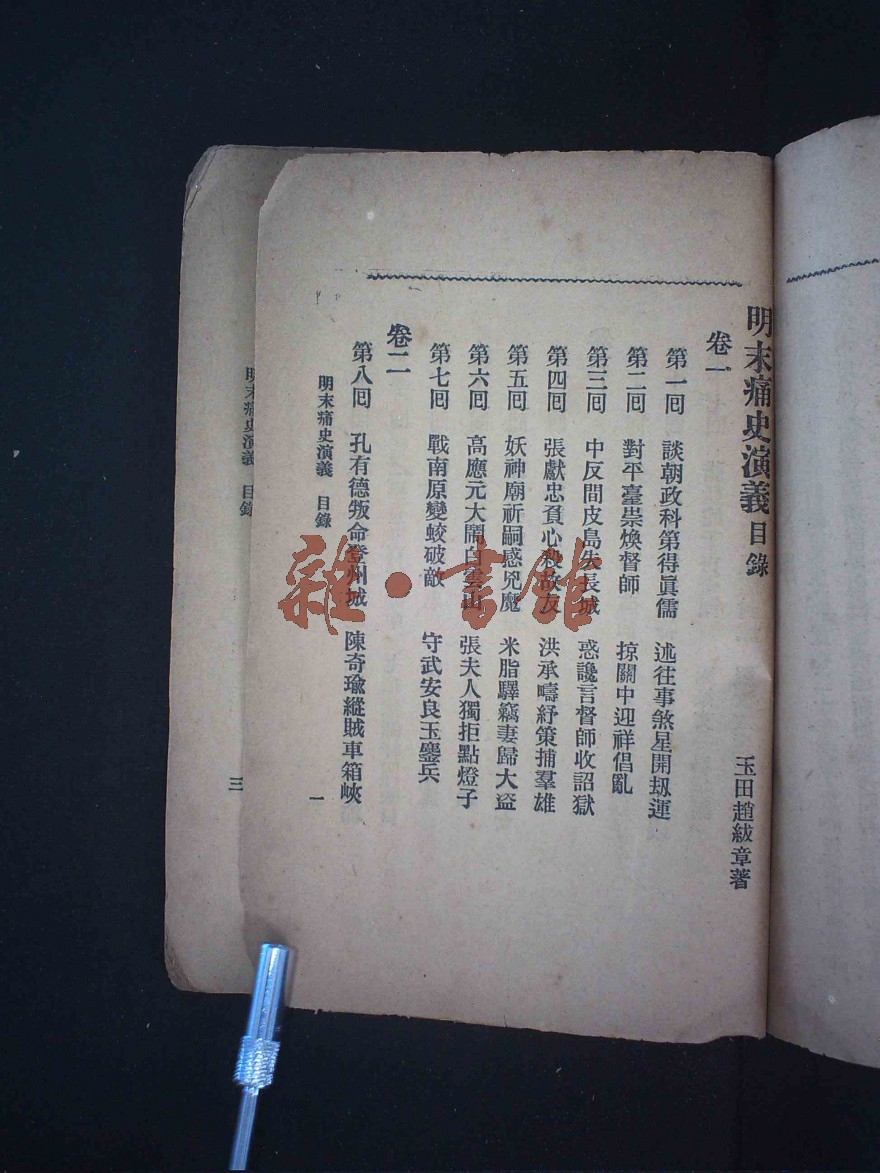 明末痛史演義目錄
玉田趙紱章著
卷一
第一囘 談朝政科第得眞儒 述往事煞星開刼運
第二囘 對平臺崇煥督師 掠關中迎祥倡亂
第三囘 中反間皮島失長城 惑讒言督師收詔獄
第四囘 張獻忠負心殺故友 洪承疇紓策捕羣雄
第五囘 妖神廟祈嗣感兇魔 米脂驛竊妻歸大盜
第六囘 高應元大鬧白雲山 張夫人獨拒點燈子
第七囘 戰南原變蛟破敵 守武安良玉鏖兵
卷二
第八囘 孔有德叛命登州城 陳奇瑜縱賊車箱峽
明末痛史演義 目錄
一
明末痛史演義 目錄
三
雜·書館